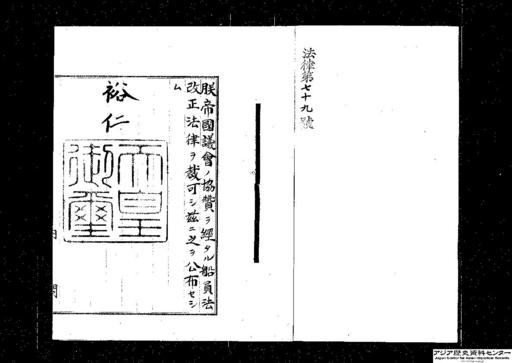 法律第七十九號
朕帝國議會ノ協贊ヲ經タル船員法
改正法律ヲ裁可シ茲ニ之ヲ公布セシ
ム
裕仁
天皇
御璽
内
閣
アジア歴史資料センター
Japan Center for Asian Historical Records